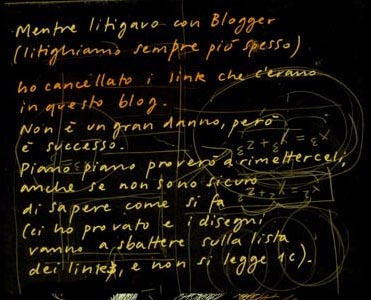 Mentre litigavo con Blogger
(litighiamo sempre più spesso)
ho cancellato i link che c'erano
in questo blog.
Non è un gran danno, però
è successo.
Piano piano proverò a rimetterceli,
anche se non sono sicuro
di sapere come si fa
(ci ho provato e i disegni
vanno a sbattere sulla lista
dei links, e non si legge